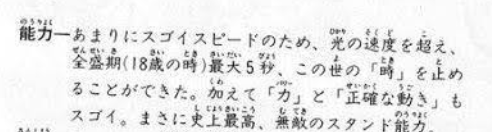 能力―あまりにスゴイスピードのため、光の速度を超え、
全盛期(18歳の時)最大5秒、この世の「時」を止め
ることができた。加えて「力」と「正確な動き」も
スゴイ。まさに史上最高、無敵のスタンド能力